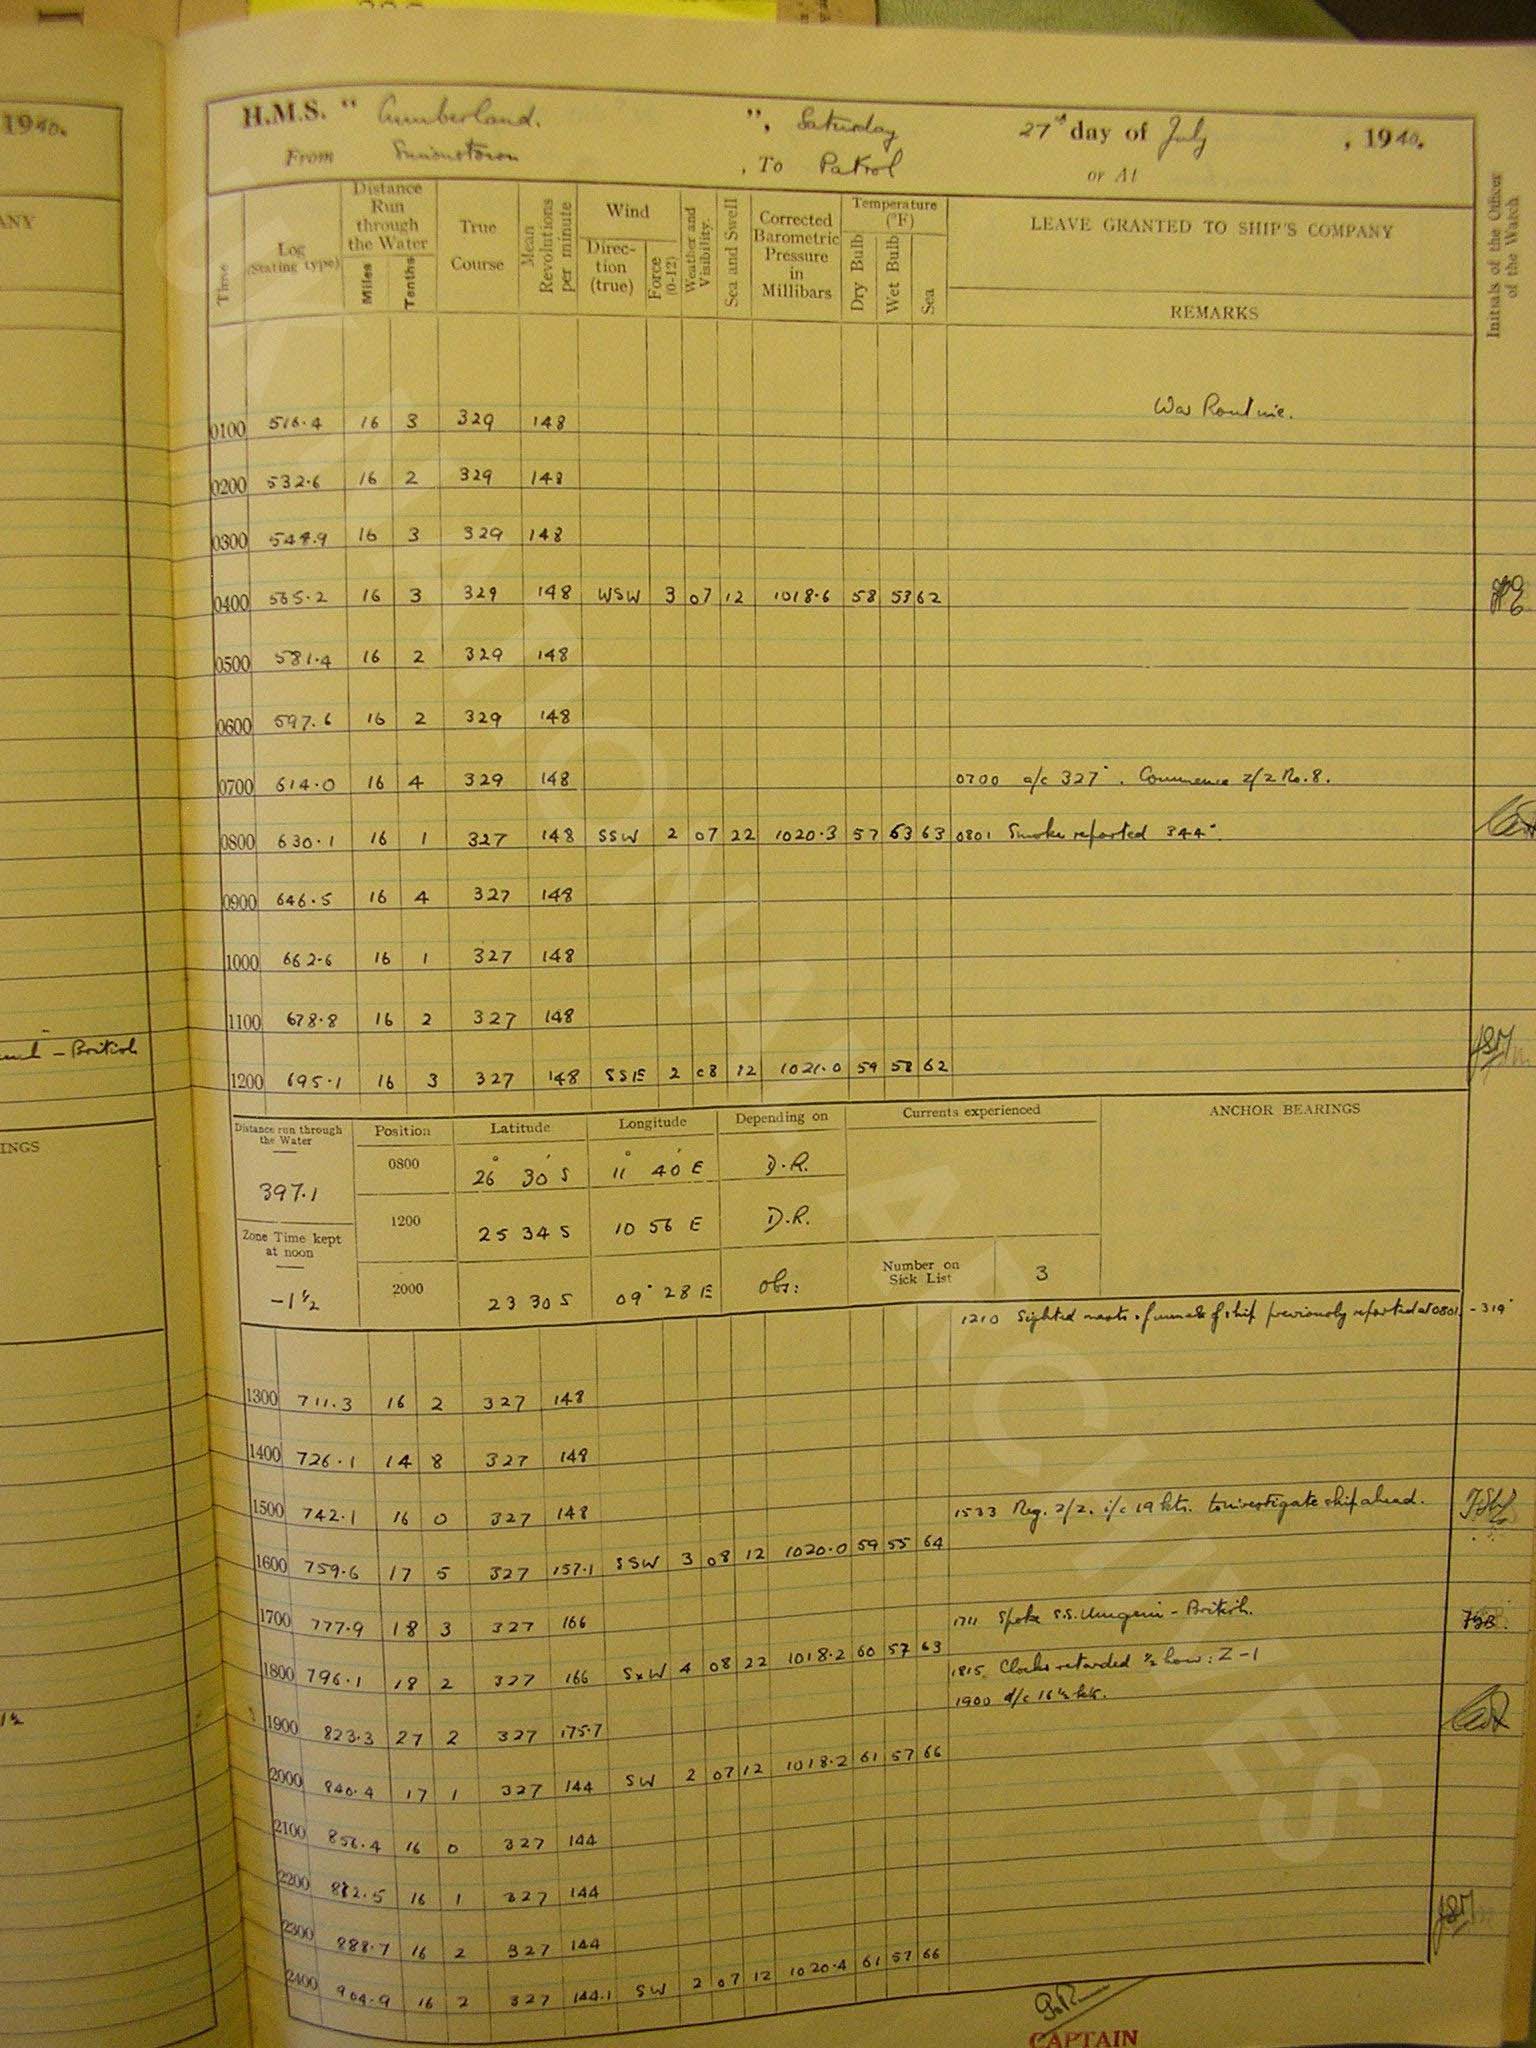 1940.
ANY
British
INGS
1½
H.M.S. " Cumberland. ", Saturday 27th day of July, 1940.
From Simonstown, To Patrol or At
Time
Log (Stating type)
Distance Run through the Water
Miles
Tenths
True Course
Mean Revolutions per minute
Wind
Direc- tion (true)
Force (0-12)
Weather and Visibility.
Sea and Swell
Corrected Barometric Pressure in Millibars
Temperature (°F)
Dry Bulb
Wet Bulb
Sea
LEAVE GRANTED TO SHIP'S COMPANY
REMARKS
Initials of the Officer of the Watch
War Routine.
0100 516.4 16 3 329 148
0200 532.6 16 2 329 148
0300 548.9 16 3 329 148
0400 565.2 16 3 329 148 WSW 3 07 12 1018.6 58 53 62
0500 581.4 16 2 329 148
0600 597.6 16 2 329 148
0700 614.0 16 4 329 148 0700 a/c 327°. Commence z/z No. 8.
0800 630.1 16 1 327 148 SSW 2 07 22 1020.3 57 53 63 0801 Smoke reported 344°.
0900 646.5 16 4 327 148
1000 662.6 16 1 327 148
1100 678.8 16 2 327 148
1200 695.1 16 3 327 148 SSE 2 08 12 1021.0 59 58 62
Distance run through the Water
397.1
Zone Time kept at noon
-1½
Position Latitude Longitude Depending on
0800 26° 30' S 11° 40' E D.R.
1200 25 34 S 10 56 E D.R.
2000 23 30 S 09° 28 E Obs:
Currents experienced
Number on Sick List 3
ANCHOR BEARINGS
1210 Sighted masts & funnels of ship previously reported at 0801. - 319°
1300 711.3 16 2 327 148
1400 726.1 14 8 327 148
1500 742.1 16 0 327 148 1533 Neg. z/z. i/c 19 kts. to investigate ship ahead.
1600 759.6 17 5 327 157.1 SSW 3 08 12 1020.0 59 55 64
1700 777.9 18 3 327 166 1711 Spoke S.S. Umgeni - British.
1800 796.1 18 2 327 166 SxW 4 08 22 1018.2 60 57 63 1815 Clocks retarded ½ hour: Z -1
1900 d/c 16½ kts.
1900 823.3 27 2 327 175.7
2000 840.4 17 1 327 144 SW 2 07 12 1018.2 61 57 66
2100 856.4 16 0 327 144
2200 872.5 16 1 327 144
2300 888.7 16 2 327 144
2400 904.9 16 2 327 144.1 SW 2 07 12 1020.4 61 57 66
CAPTAIN
NATIONAL ARCHIVES